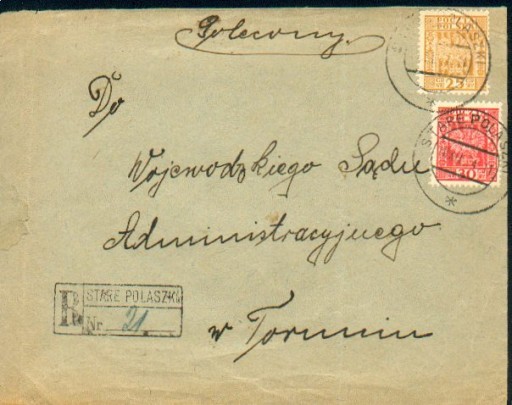 Polecony.
Do
Wojewodzkiego Sądu
Administracyjnego
w Toruniu
R
STARE POLASZKI
Nr. 21
25
STARE POLASZKI